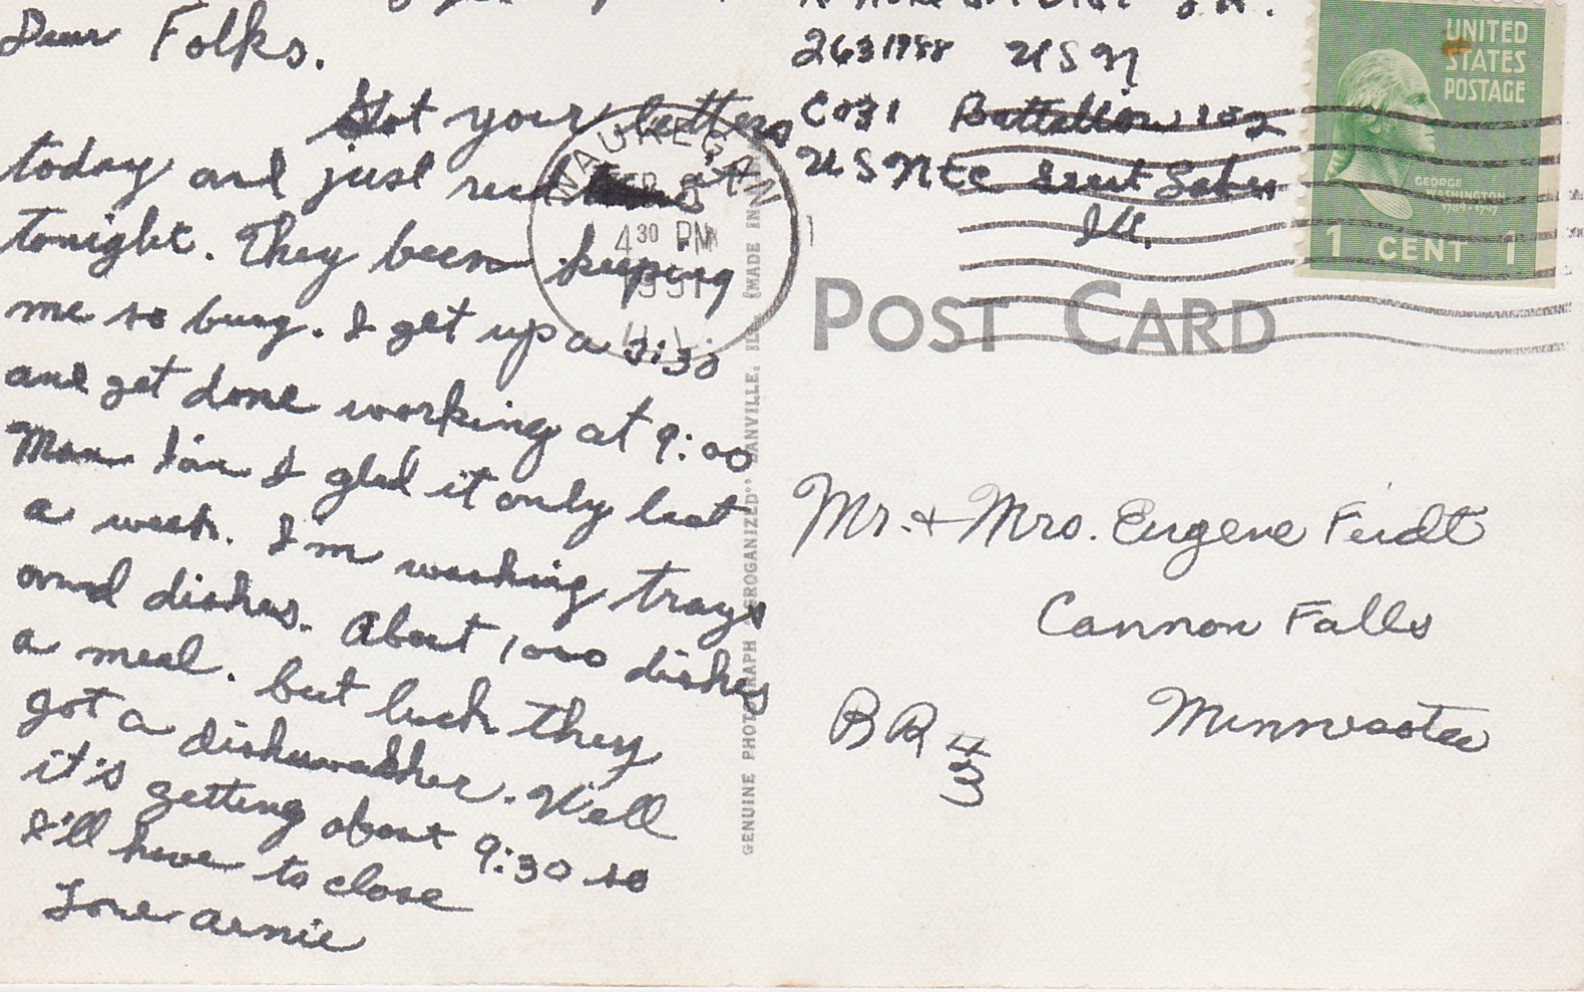 Dear Folks.
Got your letters
today and just read it
tonight. They been keeping
me so busy. I get up a 3:30
and get done working at 9:00
Man I glad it only last
a week. I'm washing trays
and dishes. About 1000 dishes
a meal. but luck they
got a dishwasher. Well
it's getting about 9:30 so
I'll have to close
Love Arnie
2631988 USN
Co 31 Battallion 102
USNTC Great Lakes
Ill.
WAUKEGAN
4 30 PM
1951
UNITED
STATES
POSTAGE
GEORGE
WASHINGTON
1 CENT 1
POST CARD
GENUINE PHOTOGRAPH "GROGANIZED" DANVILLE, ILL. (MADE IN
Mr. & Mrs. Eugene Feidt
Cannon Falls
Minnesota